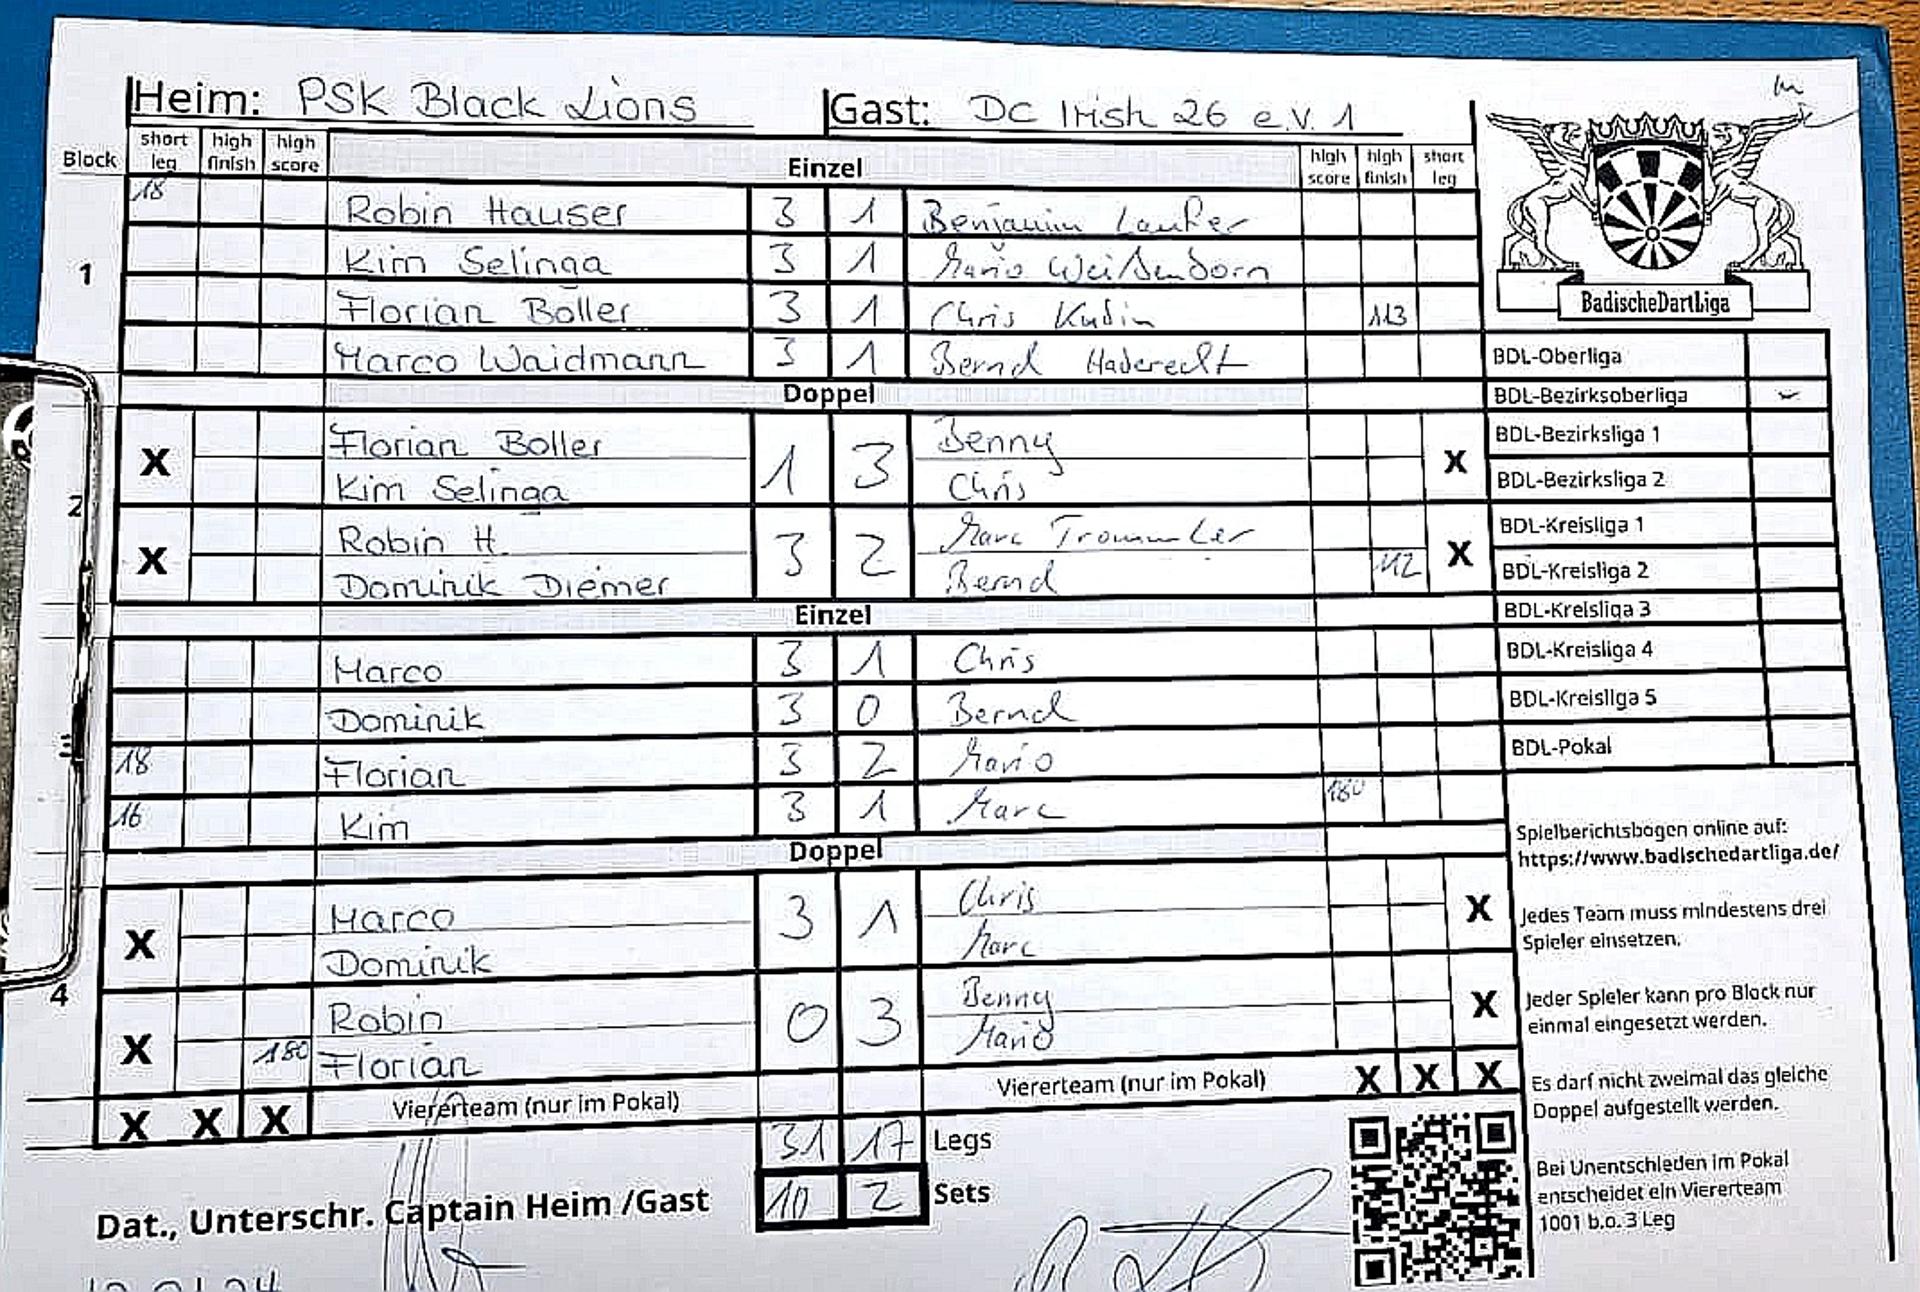 Heim: PSK Black Lions Gast: DC Irish 26 e.V. 1
Block short leg high finish high score Einzel high score high finish short leg
18 Robin Hauser 3 1 Benjamin Laufer
1 Kim Selinga 3 1 Mario Weißendorn
Florian Boller 3 1 Chris Kudin 113
Marco Waidmann 3 1 Bernd Haderecht
BadischeDartLiga
Doppel
Florian Boller 1 3 Benny
X X
Kim Selinga Chris
2
Robin H. 3 2 Marc Trommler
X X
Dominik Diemer Bernd 112
Einzel
Marco 3 1 Chris
Dominik 3 0 Bernd
18 Florian 3 2 Mario
16 Kim 3 1 Marc 180
Doppel
Marco 3 1 Chris
X X
Dominik Marc
4
Robin 0 3 Benny
X X
180 Florian Mario
X X X Viererteam (nur im Pokal) Viererteam (nur im Pokal) X X X
31 17 Legs
10 2 Sets
Dat., Unterschr. Captain Heim /Gast
BDL-Oberliga
BDL-Bezirksoberliga
BDL-Bezirksliga 1
BDL-Bezirksliga 2
BDL-Kreisliga 1
BDL-Kreisliga 2
BDL-Kreisliga 3
BDL-Kreisliga 4
BDL-Kreisliga 5
BDL-Pokal
Spielberichtsbogen online auf:
https://www.badischedartliga.de/
Jedes Team muss mindestens drei
Spieler einsetzen.
Jeder Spieler kann pro Block nur
einmal eingesetzt werden.
Es darf nicht zweimal das gleiche
Doppel aufgestellt werden.
Bei Unentschieden im Pokal
entscheidet ein Viererteam
1001 b.o. 3 Leg